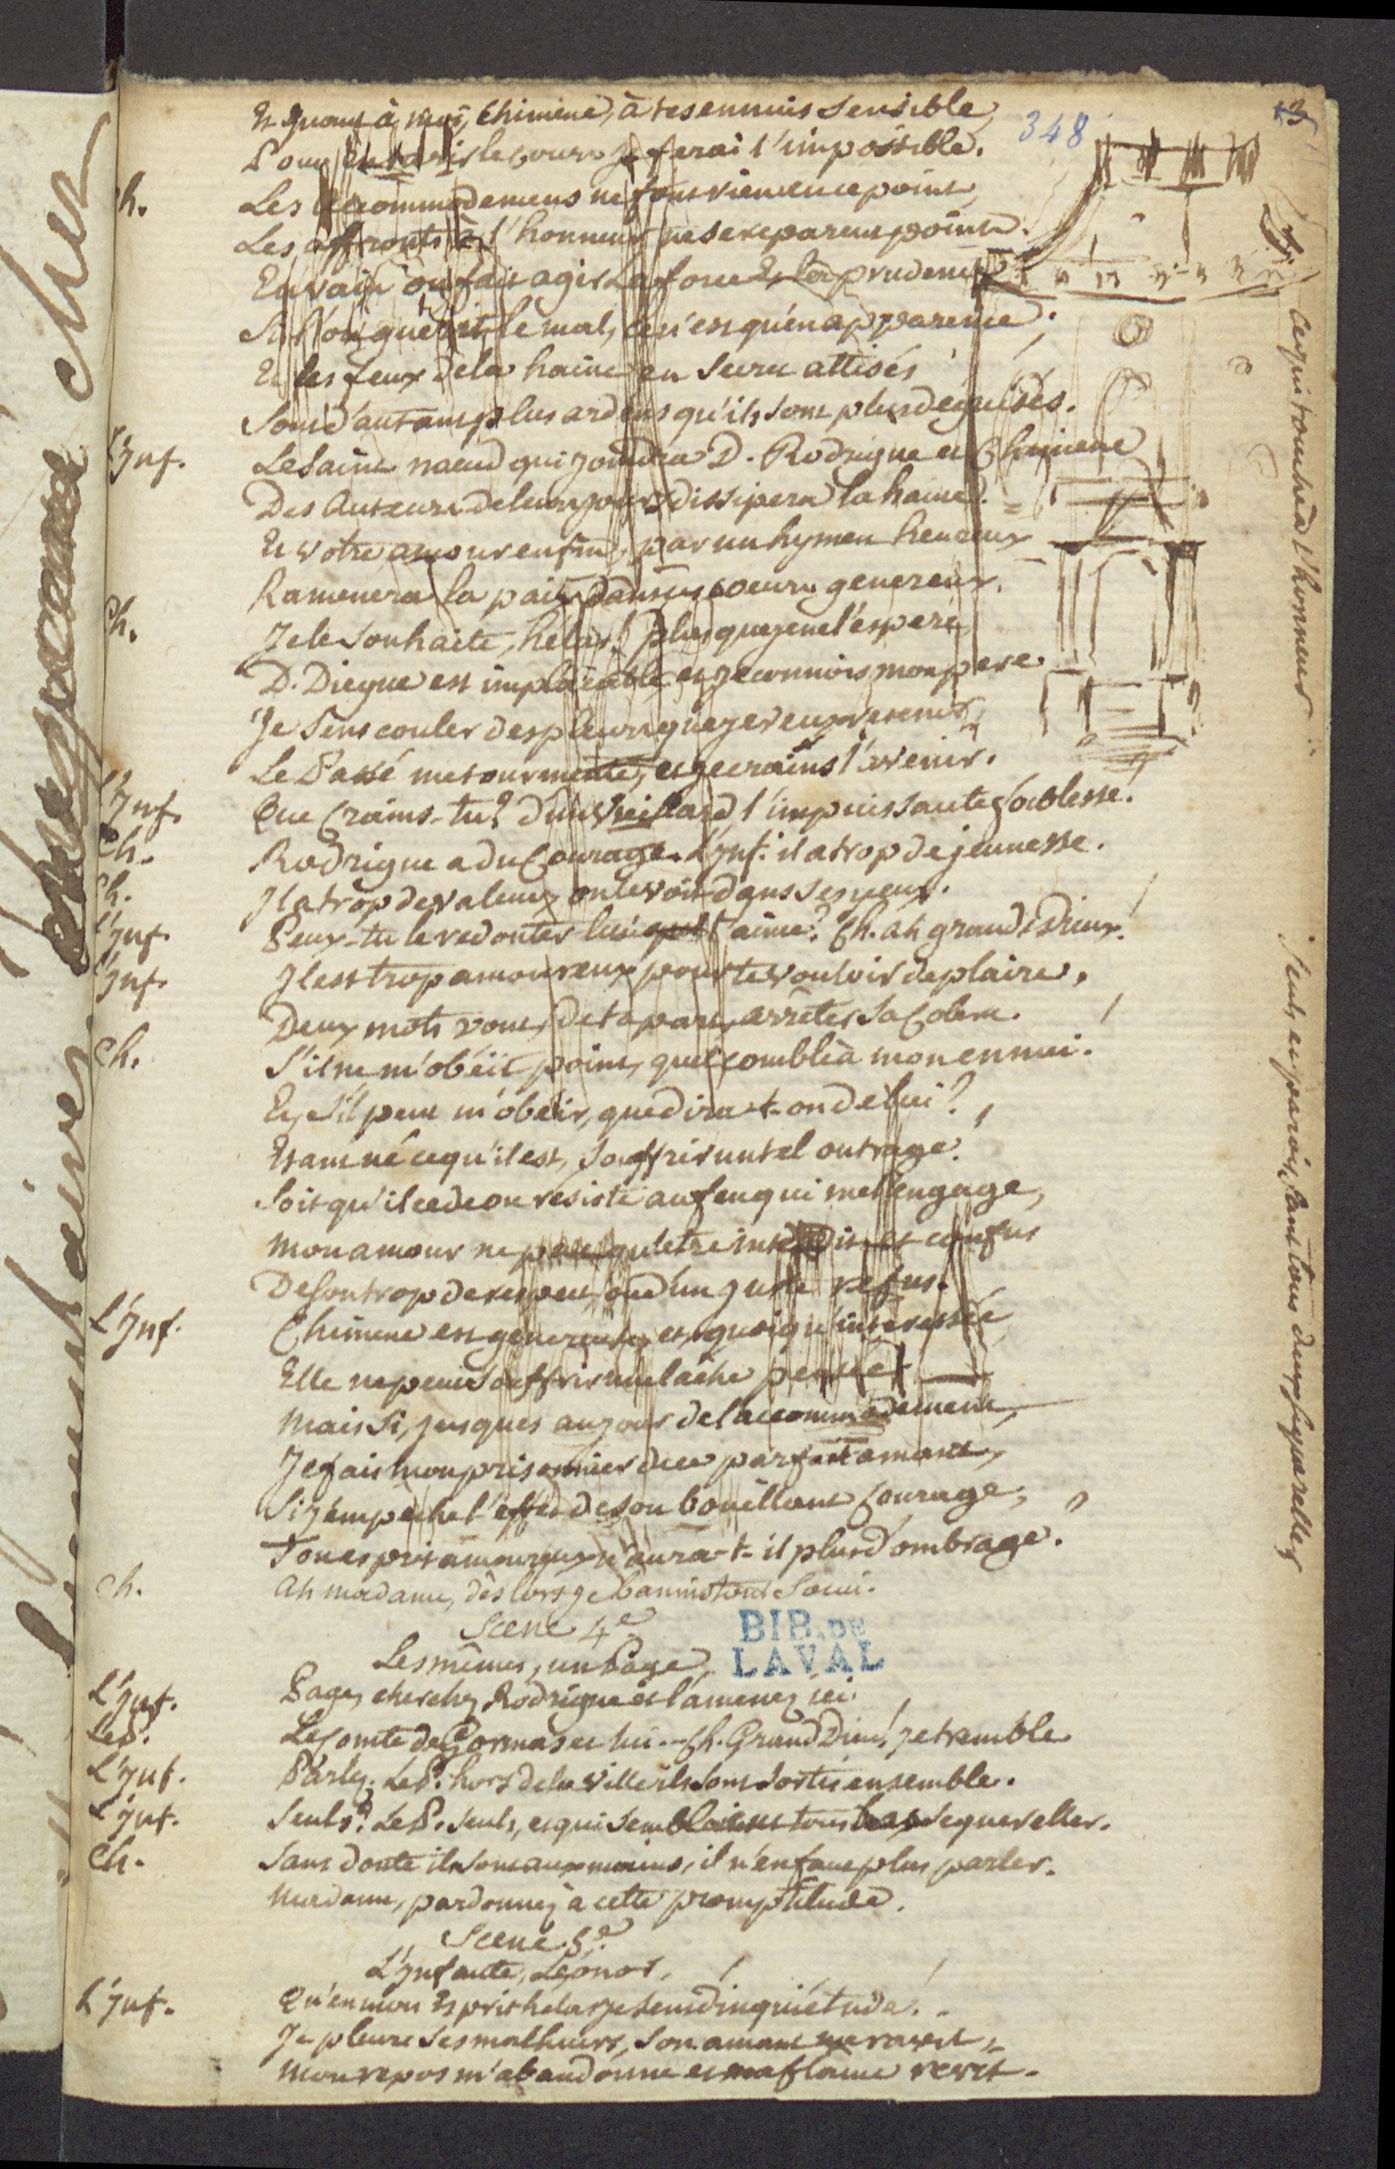 348
Et quant à moi, Chimene, à tes ennuis sensible,
Pour en tarir le cours je ferai l'impossible.
Ch. Les accommodemens ne font rien en ce point,
Les affronts à l'honneur ne se reparent point.
En vain on fait agir la force et la prudence
Si l'on guérit le mal, ce n'est qu'en apparence.
Et les feux de la haine en secret attisés
Sont d'autant plus ardens qu'ils sont plus déguisés.
L'Inf. Le saint nœud qui joindra D. Rodrigue et Chimene
Des auteurs de leurs jours dissipera la haine.
Et votre amour enfin, par un hymen heureux
Ramenera la paix dans ces coeurs genereux.
Ch. Je le souhaite, helas! plus que je ne l'espere
D. Diegue est implacable et je connois mon pere
Je sens couler des pleurs que je veux retenir,
Le Passé me tourmente, et je crains l'avenir.
L'Inf. Que crains-tu? d'un vieillard l'impuissante foiblesse!
Ch. Rodrigue a du Courage. L'Inf. il a trop de jeunesse.
Ch. Il a trop de valeur, on le voit dans ses yeux.
L'Inf. Peux-tu le redouter lui qui t'aime? Ch. ah grands Dieux!
L'Inf. Il est trop amoureux pour te vouloir deplaire,
Deux mots venus de ta part, arrêtes sa Colere.
Ch. S'il ne m'obéit point, quel comble à mon ennui.
Et s'il peut m'obeir, que dira-t-on de lui?
Etant né ce qu'il est, souffrir un tel outrage!
Soit qu'il cede ou resiste au feu qui m'engage,
Mon amour ne peut qu'etre interdit et confus
De son trop de respect, ou d'un juste refus.
L'Inf. Chimene est genereuse, et quoiqu'interessée
Elle ne peut souffrir une lâche pensée
Mais si, jusques au jour de l'accommodement,
Je fais mon prisonnier de ce parfait amant,
Si j'empeche l'effet de son bouillant Courage,
Ton esprit amoureux n'aura-t-il plus d'ombrage?
Ch. Ah madame, dès lors je bannis tout souci.
Scene 4e
Les mêmes, un Page
BIB. DE
LAVAL
L'Inf. Page, cherchez Rodrigue et l'amenez ici.
Le P. Le Comte de Gormas et lui.. Ch. Grand Dieu! je tremble
L'Inf. Parlez. Le P. hors de la ville ils sont sortis ensemble.
L'Inf. Seuls? Le P. Seuls, et qui sembloient tous bas se quereller.
Ch. Sans doute ils sont aux mains, il n'en faut plus parler.
Madame, pardonnez à cette promptitude.
Scene 5e
L'Infante, Léonor,
L'Inf. Qu'en mon Esprit helas je sens d'inquiétude!
Je pleure ses malheurs, son amant me ravit,
Mon repos m'abandonne et ma flâme revit.
ce qui touche à l'honneur
seuls, et parois, sans tous deux se quereller